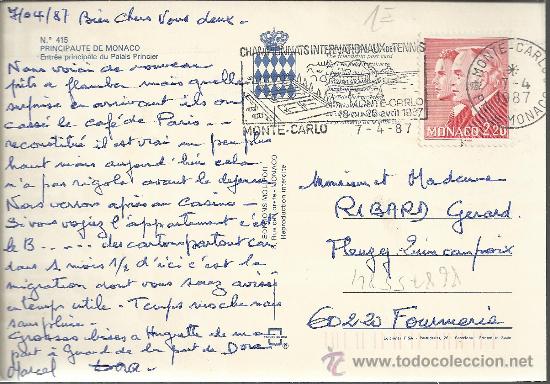 7/04/87 Bien Chers Vous deux -
N.° 415
PRINCIPAUTE DE MONACO
Entrée principale du Palais Princier
Nous voici de nouveau
prêts a flamber mais quelle
surprise en arrivant ils ont
cassé le café de Paris -
reconstitué il est vrai un peu plus
haut mais aujourd'hui cela
n'a pas rigolé avant le
Nous verrons après au Casino -
Si vous voyiez l'appartement c'est
le B..... des cartons partout car
dans 1 mois 1/2 d'ici c'est la
migration dont vous serez avisés
en temps utile - Temps mais
sans pluie -
Grosses bises a Huguette de ma
part à Gérard de la part de Dora
Marcel Dora
1E
CHAMPIONNATS INTERNATIONAUX de TENNIS
MONTE-CARLO
18 au 26 avril 1987
MONTE-CARLO 7-4-87
MONTE-CARLO
7-4
1987
MONACO
MONACO 2,20
EDITIONS MOLIPOR
MONACO
Reproduction interdite
Monsieur et Madame
RIBARD Gerard
60220 Formerie
todocoleccion
www.todocoleccion.net